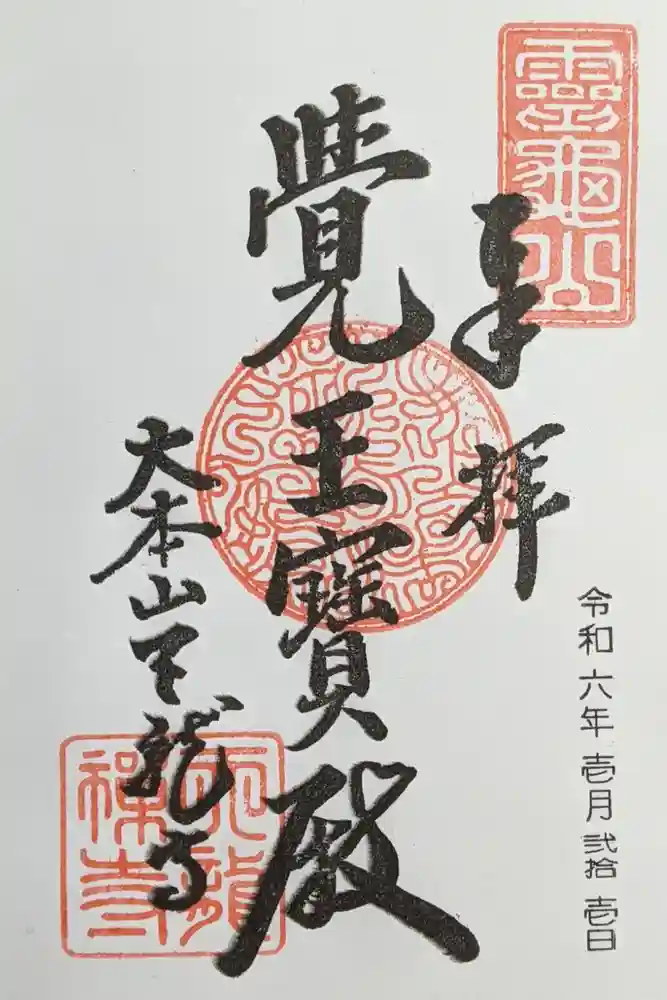 靈龜山
奉拝
令和六年壱月弐拾壱日
覺王寳殿
大本山天龍寺
天龍禅寺